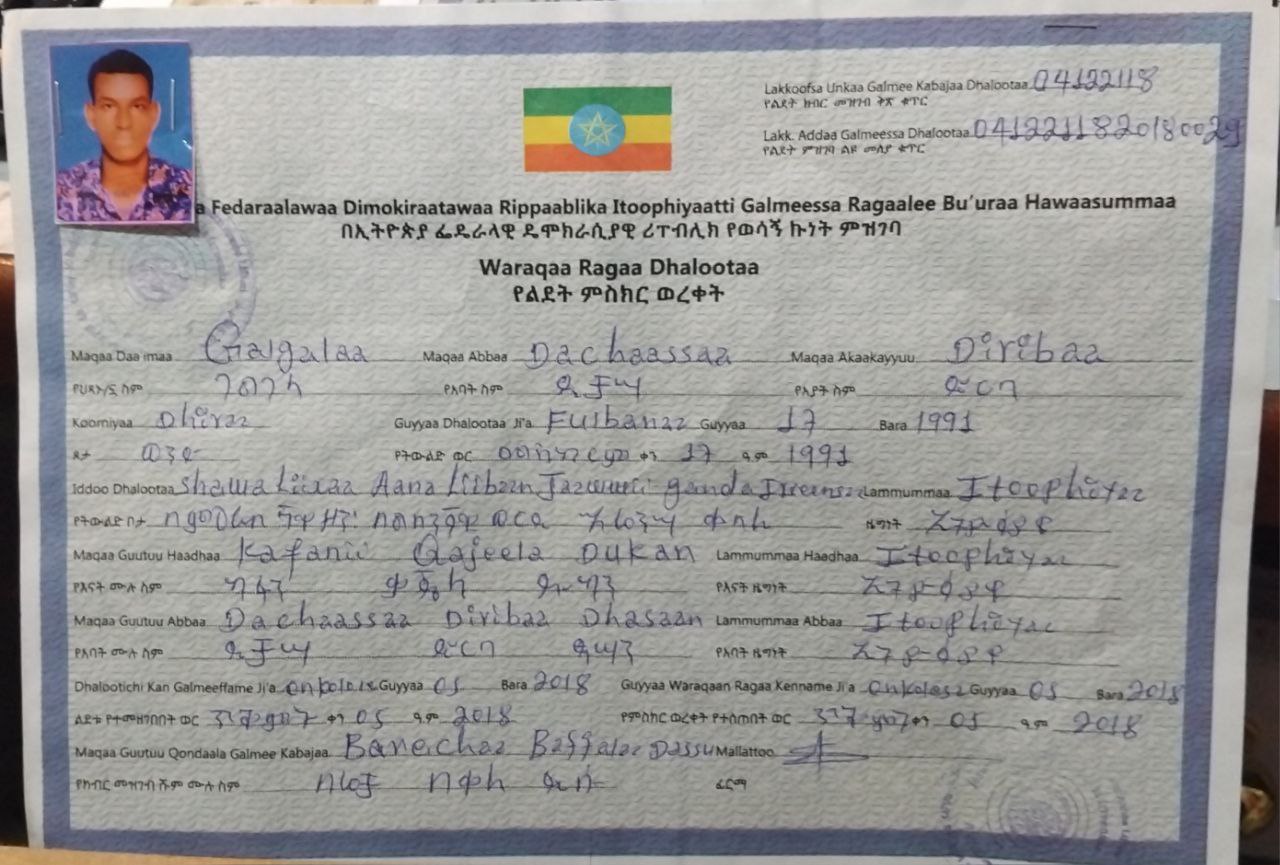 Lakkoofsa Unkaa Galmee Kabajaa Dhalootaa 04122118
የልደት ክብር መዝገብ ቅጽ ቁጥር
Lakk. Addaa Galmeessa Dhalootaa 0412211820180029
የልደት ምዝገባ ልዩ መለያ ቁጥር
a Fedaraalawaa Dimokiraatawaa Rippaablika Itoophiyaatti Galmeessa Ragaalee Bu'uraa Hawaasummaa
በኢትዮጵያ ፌዴራላዊ ዴሞክራሲያዊ ሪፐብሊክ የወሳኝ ኩነት ምዝገባ
Waraqaa Ragaa Dhalootaa
የልደት ምስክር ወረቀት
Maqaa Daa imaa Galgalaa Maqaa Abbaa Dachaassaa Maqaa Akaakayyuu Diribaa
የህጻኑ/ኗ ስም ገልገላ የአባት ስም ዳቻሣ የአያት ስም ድርባ
Koorniyaa Dhiraa Guyyaa Dhalootaa Ji'a Fulbanaa Guyyaa 17 Bara 1991
ጾታ ወንድ የትውልድ ወር መስከረም ቀን 17 ዓ.ም 1991
Iddoo Dhalootaa Shawa Lixaa Aanaa Liiban Jaawwii ganda Lammummaa Itoophiyaa
የትውልድ ቦታ ዜግነት ኢትዮጵያዊ
Maqaa Guutuu Haadhaa Kafanii Qajeela Dukan Lammummaa Haadhaa Itoophiyaa
የእናት ሙሉ ስም ካፋኒ ቀጄላ ዱካን የእናት ዜግነት ኢትዮጵያዊ
Maqaa Guutuu Abbaa Dachaassaa Diribaa Dhasaan Lammummaa Abbaa Itoophiyaa
የአባት ሙሉ ስም ዳቻሣ ድርባ ዳሣን የአባት ዜግነት ኢትዮጵያዊ
Dhalootichi Kan Galmeeffame Ji'a onkoloolee Guyyaa 05 Bara 2018 Guyyaa Waraqaan Ragaa Kenname Ji'a Guyyaa 05 Bara 2018
ልደቱ የተመዘገበበት ወር ጥቅምት ቀን 05 ዓ.ም 2018 የምስክር ወረቀት የተሰጠበት ወር ጥቅምት ቀን 05 ዓ.ም 2018
Maqaa Guutuu Qondaala Galmee Kabajaa Baqqalaa Dassu Mallattoo
የክብር መዝገብ ሹም ሙሉ ስም በቀለ ደሱ ፊርማ